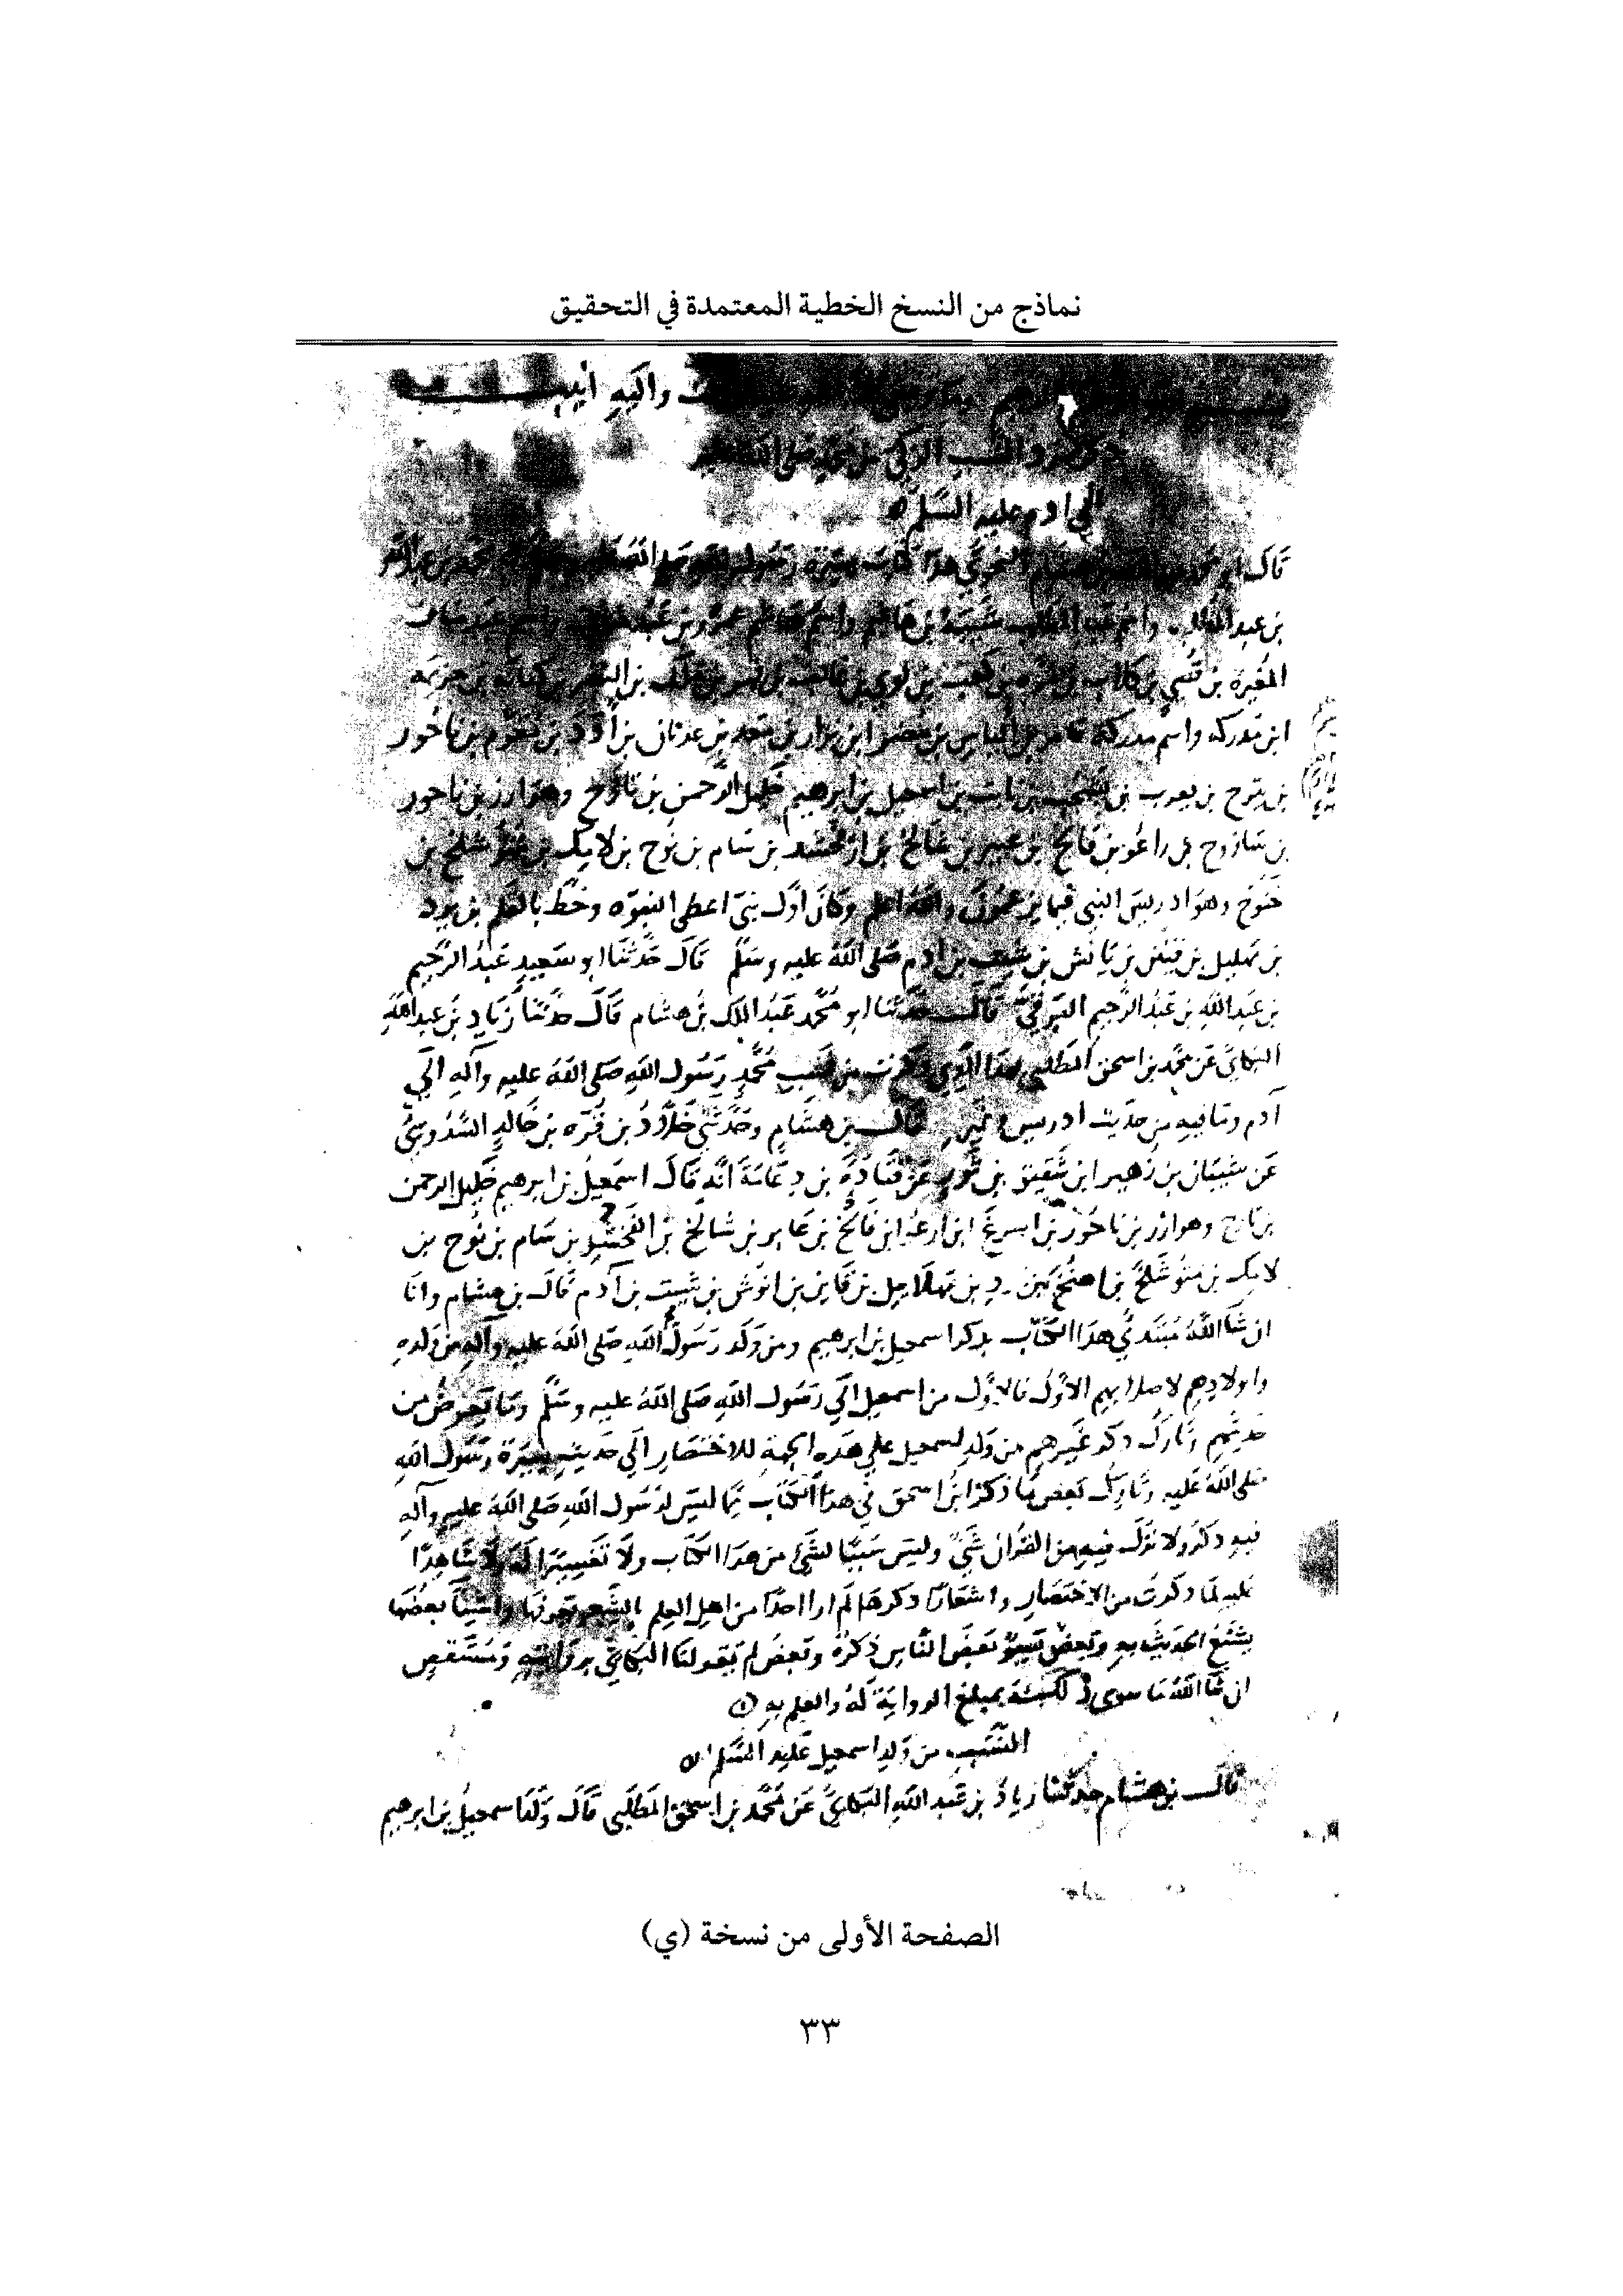 نماذج من النسخ الخطية المعتمدة في التحقيق
واليه انيب
ذكر سرد النسب الزكي من محمد صلى الله عليه
الى ادم عليه السلم
قال ابو محمد هشام النحوي هذا كتاب سيرة رسول الله صلى الله محمد بن عبد الله
بن عبد المطلب واسم عبد المطلب شيبة بن هاشم واسم هاشم عمرو بن عبد مناف واسم عبد مناف
المُغيرة بن قُصي بن كلاب بن مُرة بن كعب بن لوي بن غالب بن فهر بن ملك بن النضر بن كنانه بن خزيمه
ابن مدركه واسم مدركة عامر بن الياس بن مضر ابن نزار بن معد بن عدنان بن أُدَد بن مُقوم بن ناحُور
بن يترح بن يعرب بن يشجب بن نابت بن اسمعيل بن ابرهيم خليل الرحمن بن تارح وهو ازر بن ناحور
بن ساروح بن راعُو بن فالخ بن عيبر بن شالخ بن ارفخشد بن سَام بن نوح بن لامك بن متوشلخ بن
خنُوخ وهو ادريس النبي فيما يزعمُون والله اعلم وكان اوّل نبيّ اعطى النبوه وخطّ بالقلم بن يرد
بن مهليل بن قينن بن يَانش بن شيث بن ادم صَلى اللهُ عليه وسَلم قال حَدثنا ابو سَعيدٍ عَبدُ الرّحيم
بن عَبد اللهِ بن عَبْدُ الرّحيم البرقيّ قال حدّثنا ابو مُحمد عَبدُ الملك بنُ هشام قَالَ حدَّثنا زيَاد بنُ عبد الله
البَكائيّ عَن محمّد بن اسحق المطّلبي بهذا الذي ذكرت من نسب مُحمّدٍ رَسُول اللهِ صَلى اللهُ عليه وآله الى
آدم وما فيه من حديث ادريس وغيره قال بن هشام وحَدّثني خلّادُ بن قُرّه بن خالدٍ السَّدُوسيُّ
عَن شيبَان بن زُهير ابن شَقيق بن ثورٍ عَن قتادَةَ بن دعَامَة انّهُ قَالَ اسمَعيلُ بن ابرهيم خَليل الرحمن
بن تارح وهو ازر بن ناحُور بن اسرغ ابن ارعُو ابن فَالخ بن عَابر بن شالخ بن الفخشد بن سَام بن نُوح بن
لامك بن متُوشلخ بن اهنُخ بن يرد بن مهلاييل بن قاين بن انوش بن شيث بن آدم قَال بن هشام وانا
ان شَا اللهُ مُبتدئٌ هذَا الكتاب بذكر اسمعيل بن ابرهيم ومن وَلَد رَسُولَ اللهِ صَلى اللهُ عليه وآله من وَلده
واولادِهم لاصلابهم الاوّل فالاوّل من اسمعيل الَى رَسُول اللهِ صَلى اللهُ عليه وسَلم وما يَعرضُ من
حَديثهم وتَارك ذكر غَيرهم من وَلدِ اسمعيل على هَذه الجهةِ للاختصَار الَى حَديث سيرَة رَسُول اللهِ
صَلى اللهُ عليه وتَارك بَعض مَا ذكرَ ابنُ اسحق في هذا الكتاب مما ليسَ لرسُول اللهِ صَلى اللهُ عليه وآله
فيه ذكرٌ ولا نزلَ فيه من القُرآن شيٌ وليسَ سَببًا لشئٍ من هذا الكتاب ولا تفسيرًا لَهُ ولا شَاهدًا
عَليه لمَا ذكرتُ من الاختصار واشعَارًا ذكرهَا لَم ارا احدًا من اهل العلم بالشّعر يَعرفُها واشيَاءَ بعضُها
يشنُعُ الحديثُ به وبعضٌ يسُوُ بَعضَ النّاس ذكرُهُ وبَعضٌ لم يَقر لنَا البَكائيّ بروايته ومُستقصٍ
ان شَا اللهُ مَا سوى ذلك منهُ بمبلغ الروايَةِ لَهُ والعلم به
النّسَب من وَلد اسمعيل عَليه السَّلم
قال بن هشام حدثنا زيادُ بن عَبد اللهِ البَكائيُّ عَن مُحمّد بن اسحق المطّلبي قَال وَلدَ اسمعيلُ بن ابرهيم
الصفحة الأولى من نسخة (ي)
٣٣